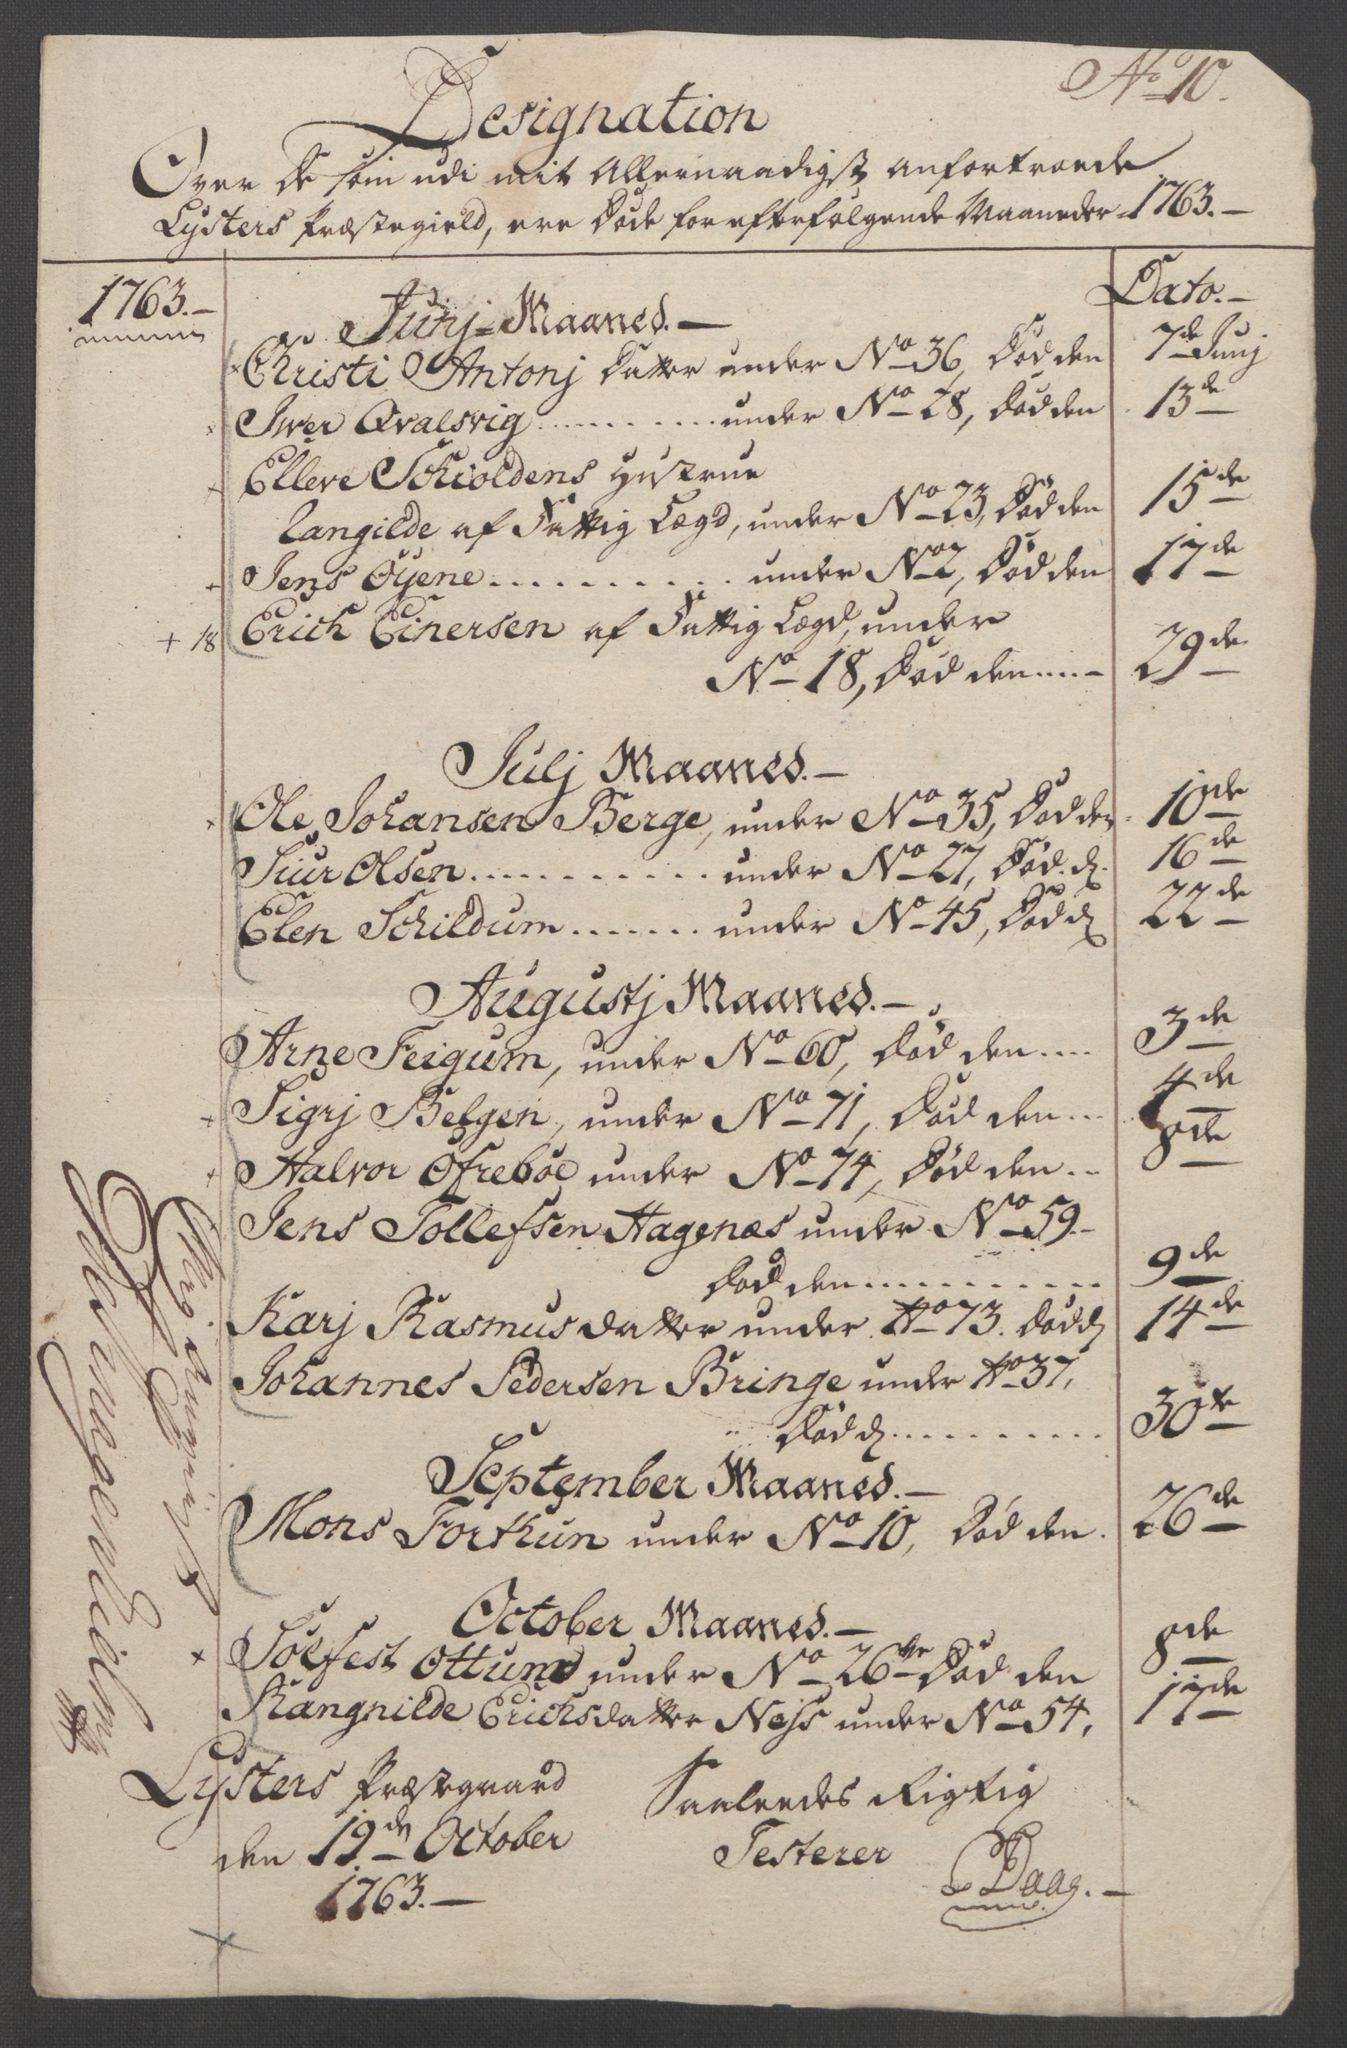 No 10.
Designation
Over de som udi mit Allernaadigst anfortroede
Lysters Præstegield, ere Døde for efterfølgende Maaneder 1763.
1763.
Dato.
Junj Maaned.
Christi Antonj Datter under No 36, Død den 7de Junj
Iver Qvalsvig .......... under No 28, Død den 13de
Elleve Schioldens Hustrue
Langilde af Fattig Lægd, under No 23, Død den 15de
Jens Øyene .......... under No 2, Død den 17de
+ 18 Erich Einersen af Fattig Lægd, under
No 18, Død den .... 29de
Julj Maaned.
Ole Johansen Berge, under No 35, Død den 10de
Siur Olsen .......... under No 27, Død d. 16de
Elen Schildum ....... under No 45, Død d. 22de
Augustj Maaned.
Arne Feigum, under No 60, Død den .... 3de
Sigrj Bergen, under No 71, Død den ... 4de
Halvor Ofrebøe under No 74, Død den .. 8de
Jens Tollefsen Hagenæs under No 59.
Død den .......... 9de
Karj Rasmusdatter under No 73. Død d. 14de
Johannes Pedersen Bringe under No 37,
Død d. .......... 30te
September Maaned.
Mons Forthun under No 10, Død den. 26de
October Maaned.
Solfest Ottum under No 26 Død den 8de
Rangnilde Erichsdatter Ness under No 54, 17de
Lysters Præstegaard
den 19de October
1763.
Saaledes Rigtig
Testerer
Daae.